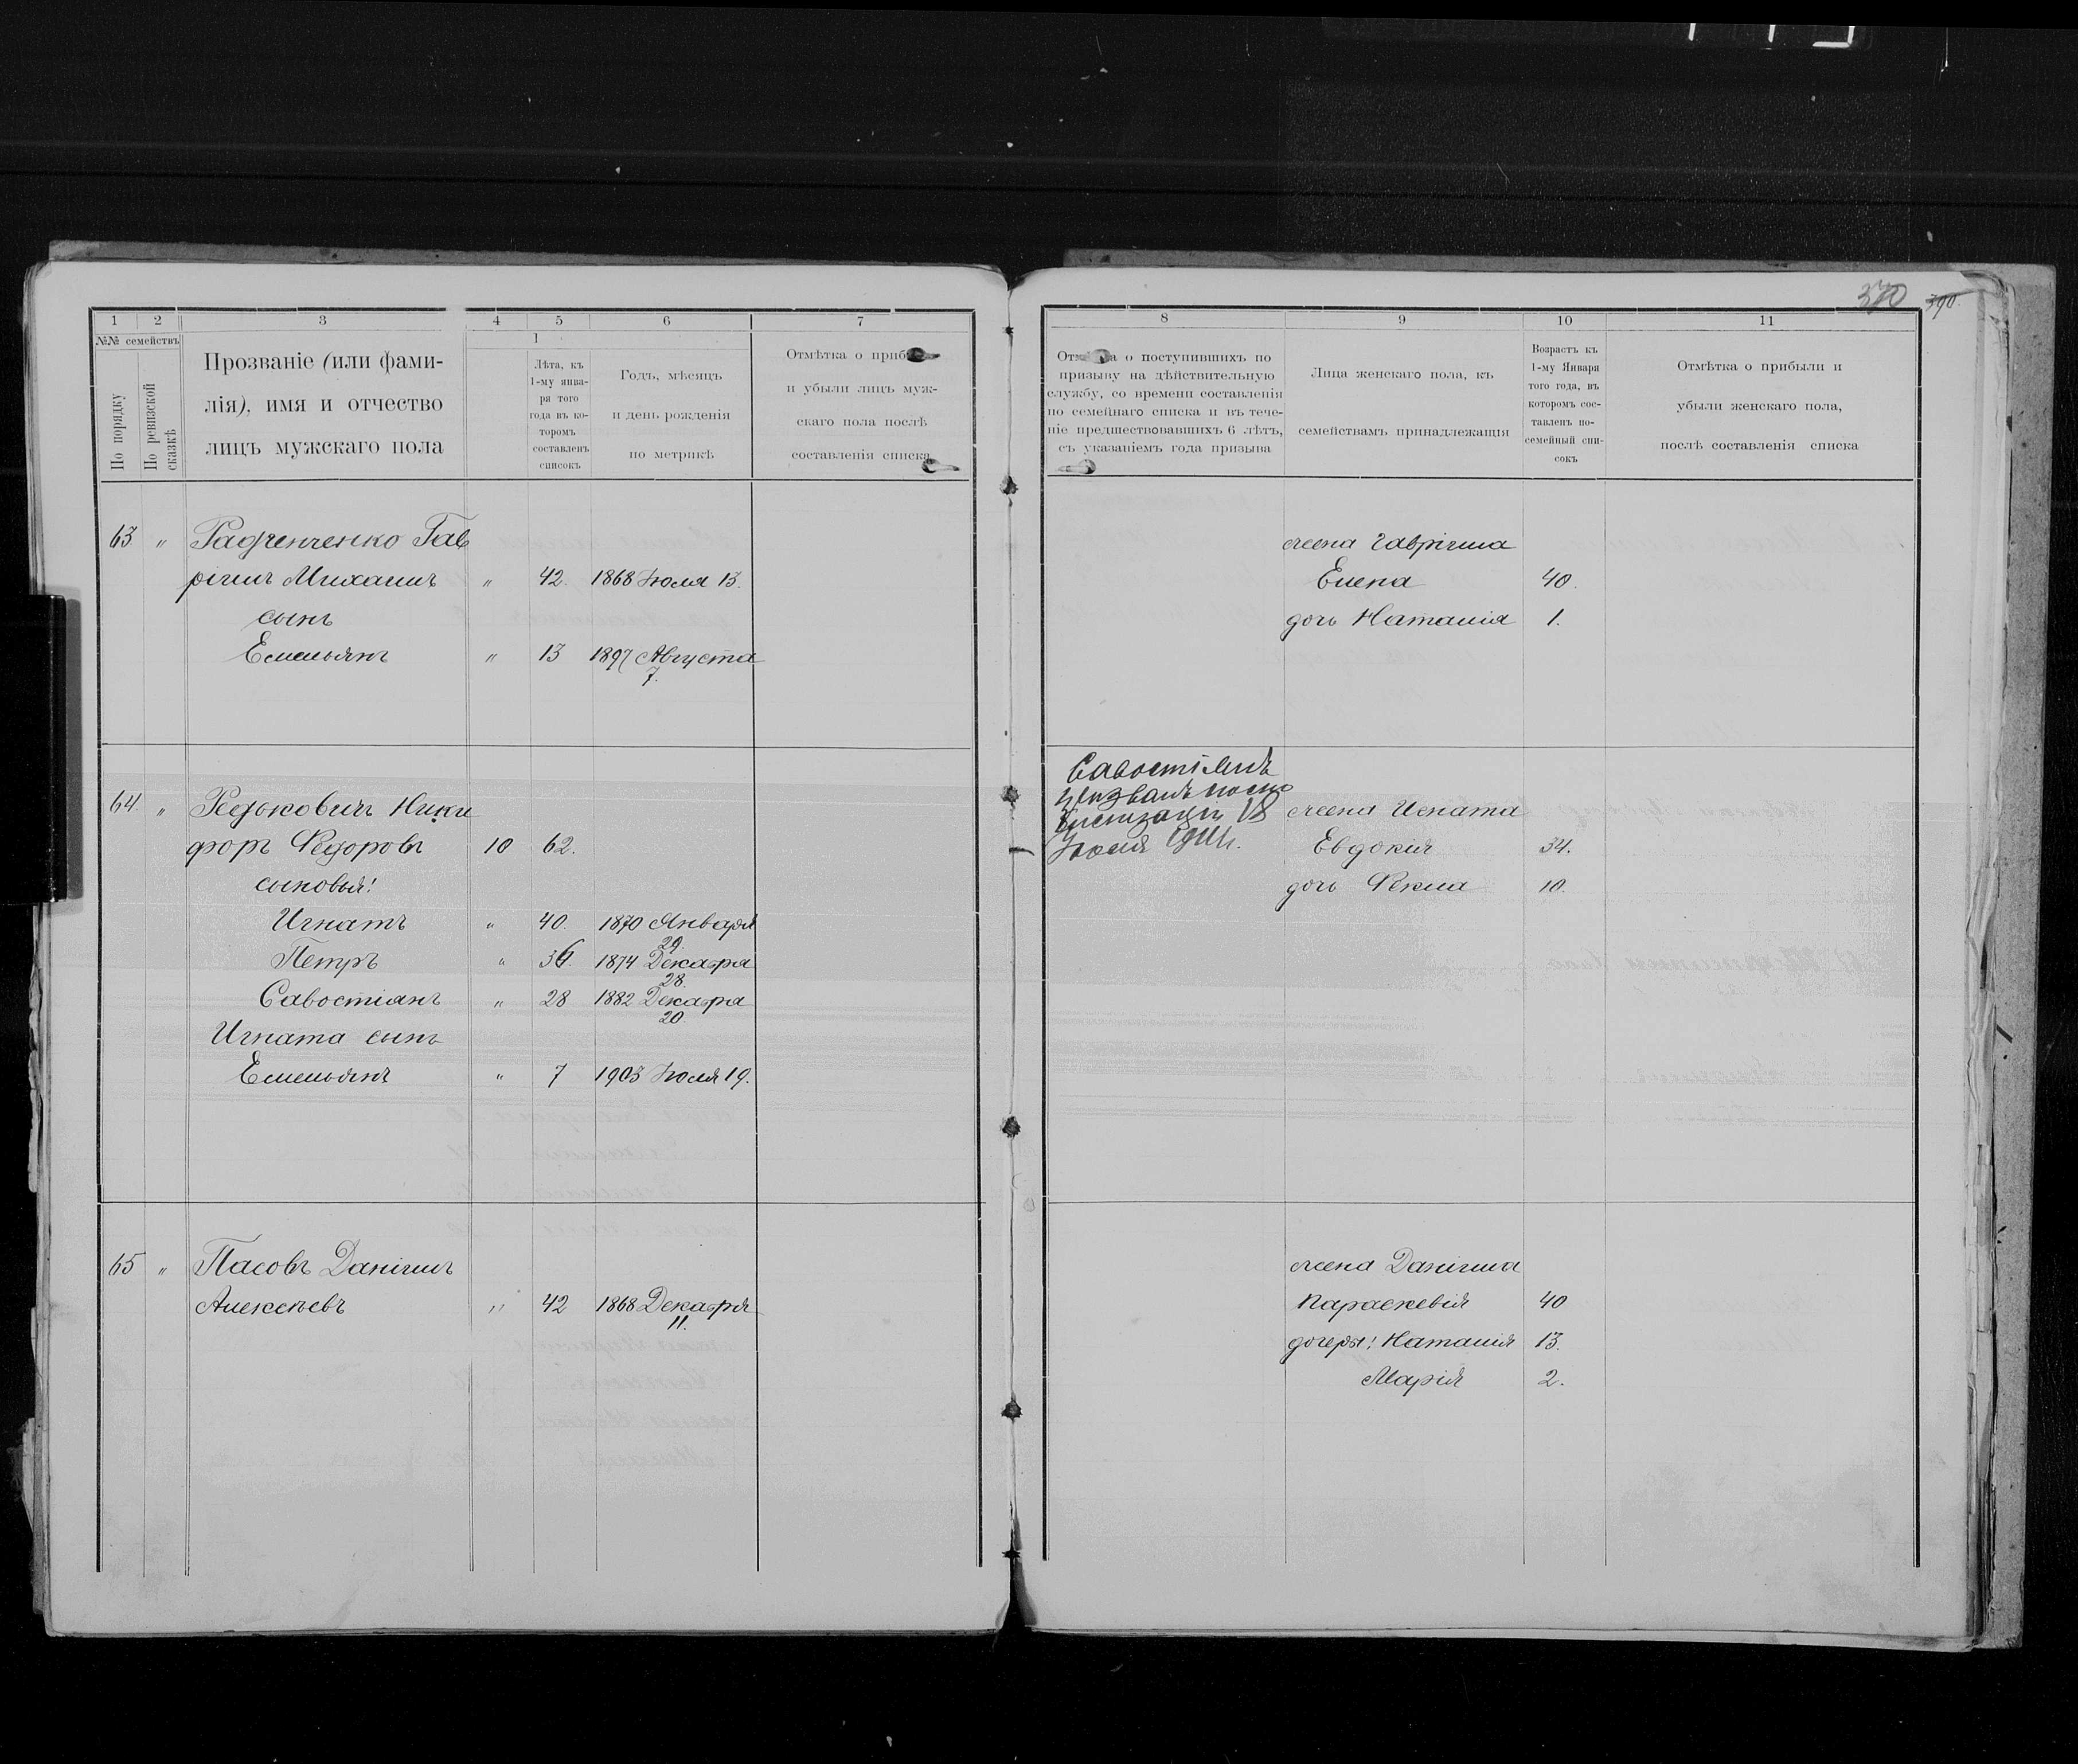 1 2 3 4 5 6 7
№№ семействъ
По порядку
По ревизской сказкѣ
Прозваніе (или фами-
лія), имя и отчество
лицъ мужскаго пола
1
Лѣта, къ
1-му янва-
ря того
года въ ко-
торомъ
составленъ
списокъ
Годъ, мѣсяцъ
и день рожденія
по метрикѣ
Отмѣтка о приб
и убыли лицъ муж-
скаго пола послѣ
составленія списка
63 " Радченченко Гав
ріилъ Михаилъ " 42. 1868 Іюля 13.
сынъ
Емельянъ " 13 1897 Августа
7.
64. " Редьковичъ Ники
форъ Ѳедоровъ 10 62.
сыновья:
Игнатъ " 40. 1870 Января
29.
Петръ " 36. 1874 Декабря
28.
Савостіянъ " 28 1882 Декабря
20.
Игната сынъ
Емельянъ " 7 1903 Іюля 19.
65 " Пасовъ Даніилъ
Алексѣевъ " 42 1868 Декабря
11.
370 390.
8 9 10 11
о поступившихъ по
призыву на дѣйствительную
службу, со времени составленія
по семейнаго списка и въ тече-
ніе предшествовавшихъ 6 лѣтъ,
съ указаніемъ года призыва
Лица женскаго пола, къ
семействамъ принадлежащія
Возрастъ къ
1-му Января
того года, въ
которомъ сос-
тавленъ по-
семейный спи-
сокъ
Отмѣтка о прибыли и
убыли женскаго пола,
послѣ составленія списка
жена Гавріила
Елена 40.
дочь Наталія 1.
Савостіянъ
призванъ по мо
билизаціи 18
Іюля 1914г.
жена Игната
Евдокія 34.
дочь Ѳекла 10.
жена Даніила
Параскевія 40
дочери: Наталія 13.
Марія 2.